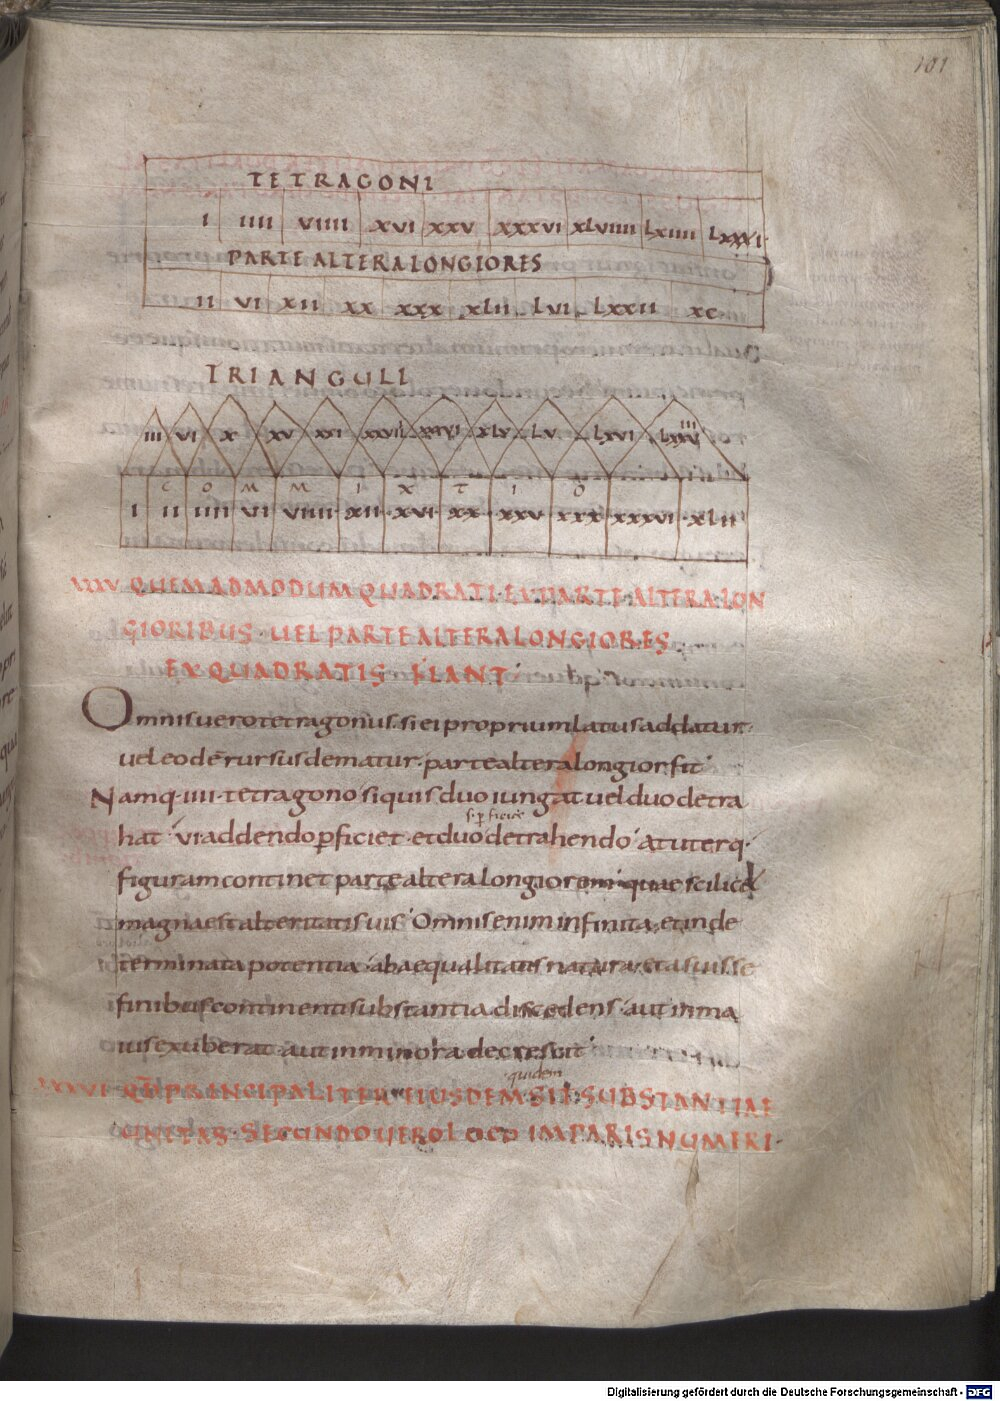 101
TETRAGONI
I IIII VIIII XVI XXV XXXVI XLVIIII LXIIII LXXXI
PARTE ALTERA LONGIORES
II VI XII XX XXX XLII LVI LXXII XC
TRIANGULI
III VI X XV XXI XXVIII XXXVI XLV LV LXVI
COMMIXTIO
I II IIII VI VIIII XII XVI XX XXV XXX XXXVI XLII
QUEMADMODUM QUADRATI EX PARTE ALTERA LON
GIORIBUS · UEL PARTE ALTERA LONGIORES
EX QUADRATIS FIANT
Omnis uero tetragonus · si ei proprium latus addatur ·
uel eodē rursus dematur · parte altera longior fit
Namq · IIII · tetragono si quis duo iungat uel duo detra
s. pficiet
hat VI addendo pficiet · et duo detrahendo At uterq ·
figuram continet parte altera longiorem · quae scilicet
magna est alteritatis uis Omnis enim infinita · et inde
terminata potentia · ab aequalitatis natura · et a suis se
finibus continenti substantia discedens · aut in ma
ius exuberat · aut in minora decrescit
quidem
XXXVI QD PRINCIPALITER EIUSDEM SIT SUBSTANTIAE
UNITAS · SECUNDO UERO LOCO IMPARIS NUMERI ·
Digitalisierung gefördert durch die Deutsche Forschungsgemeinschaft - DFG